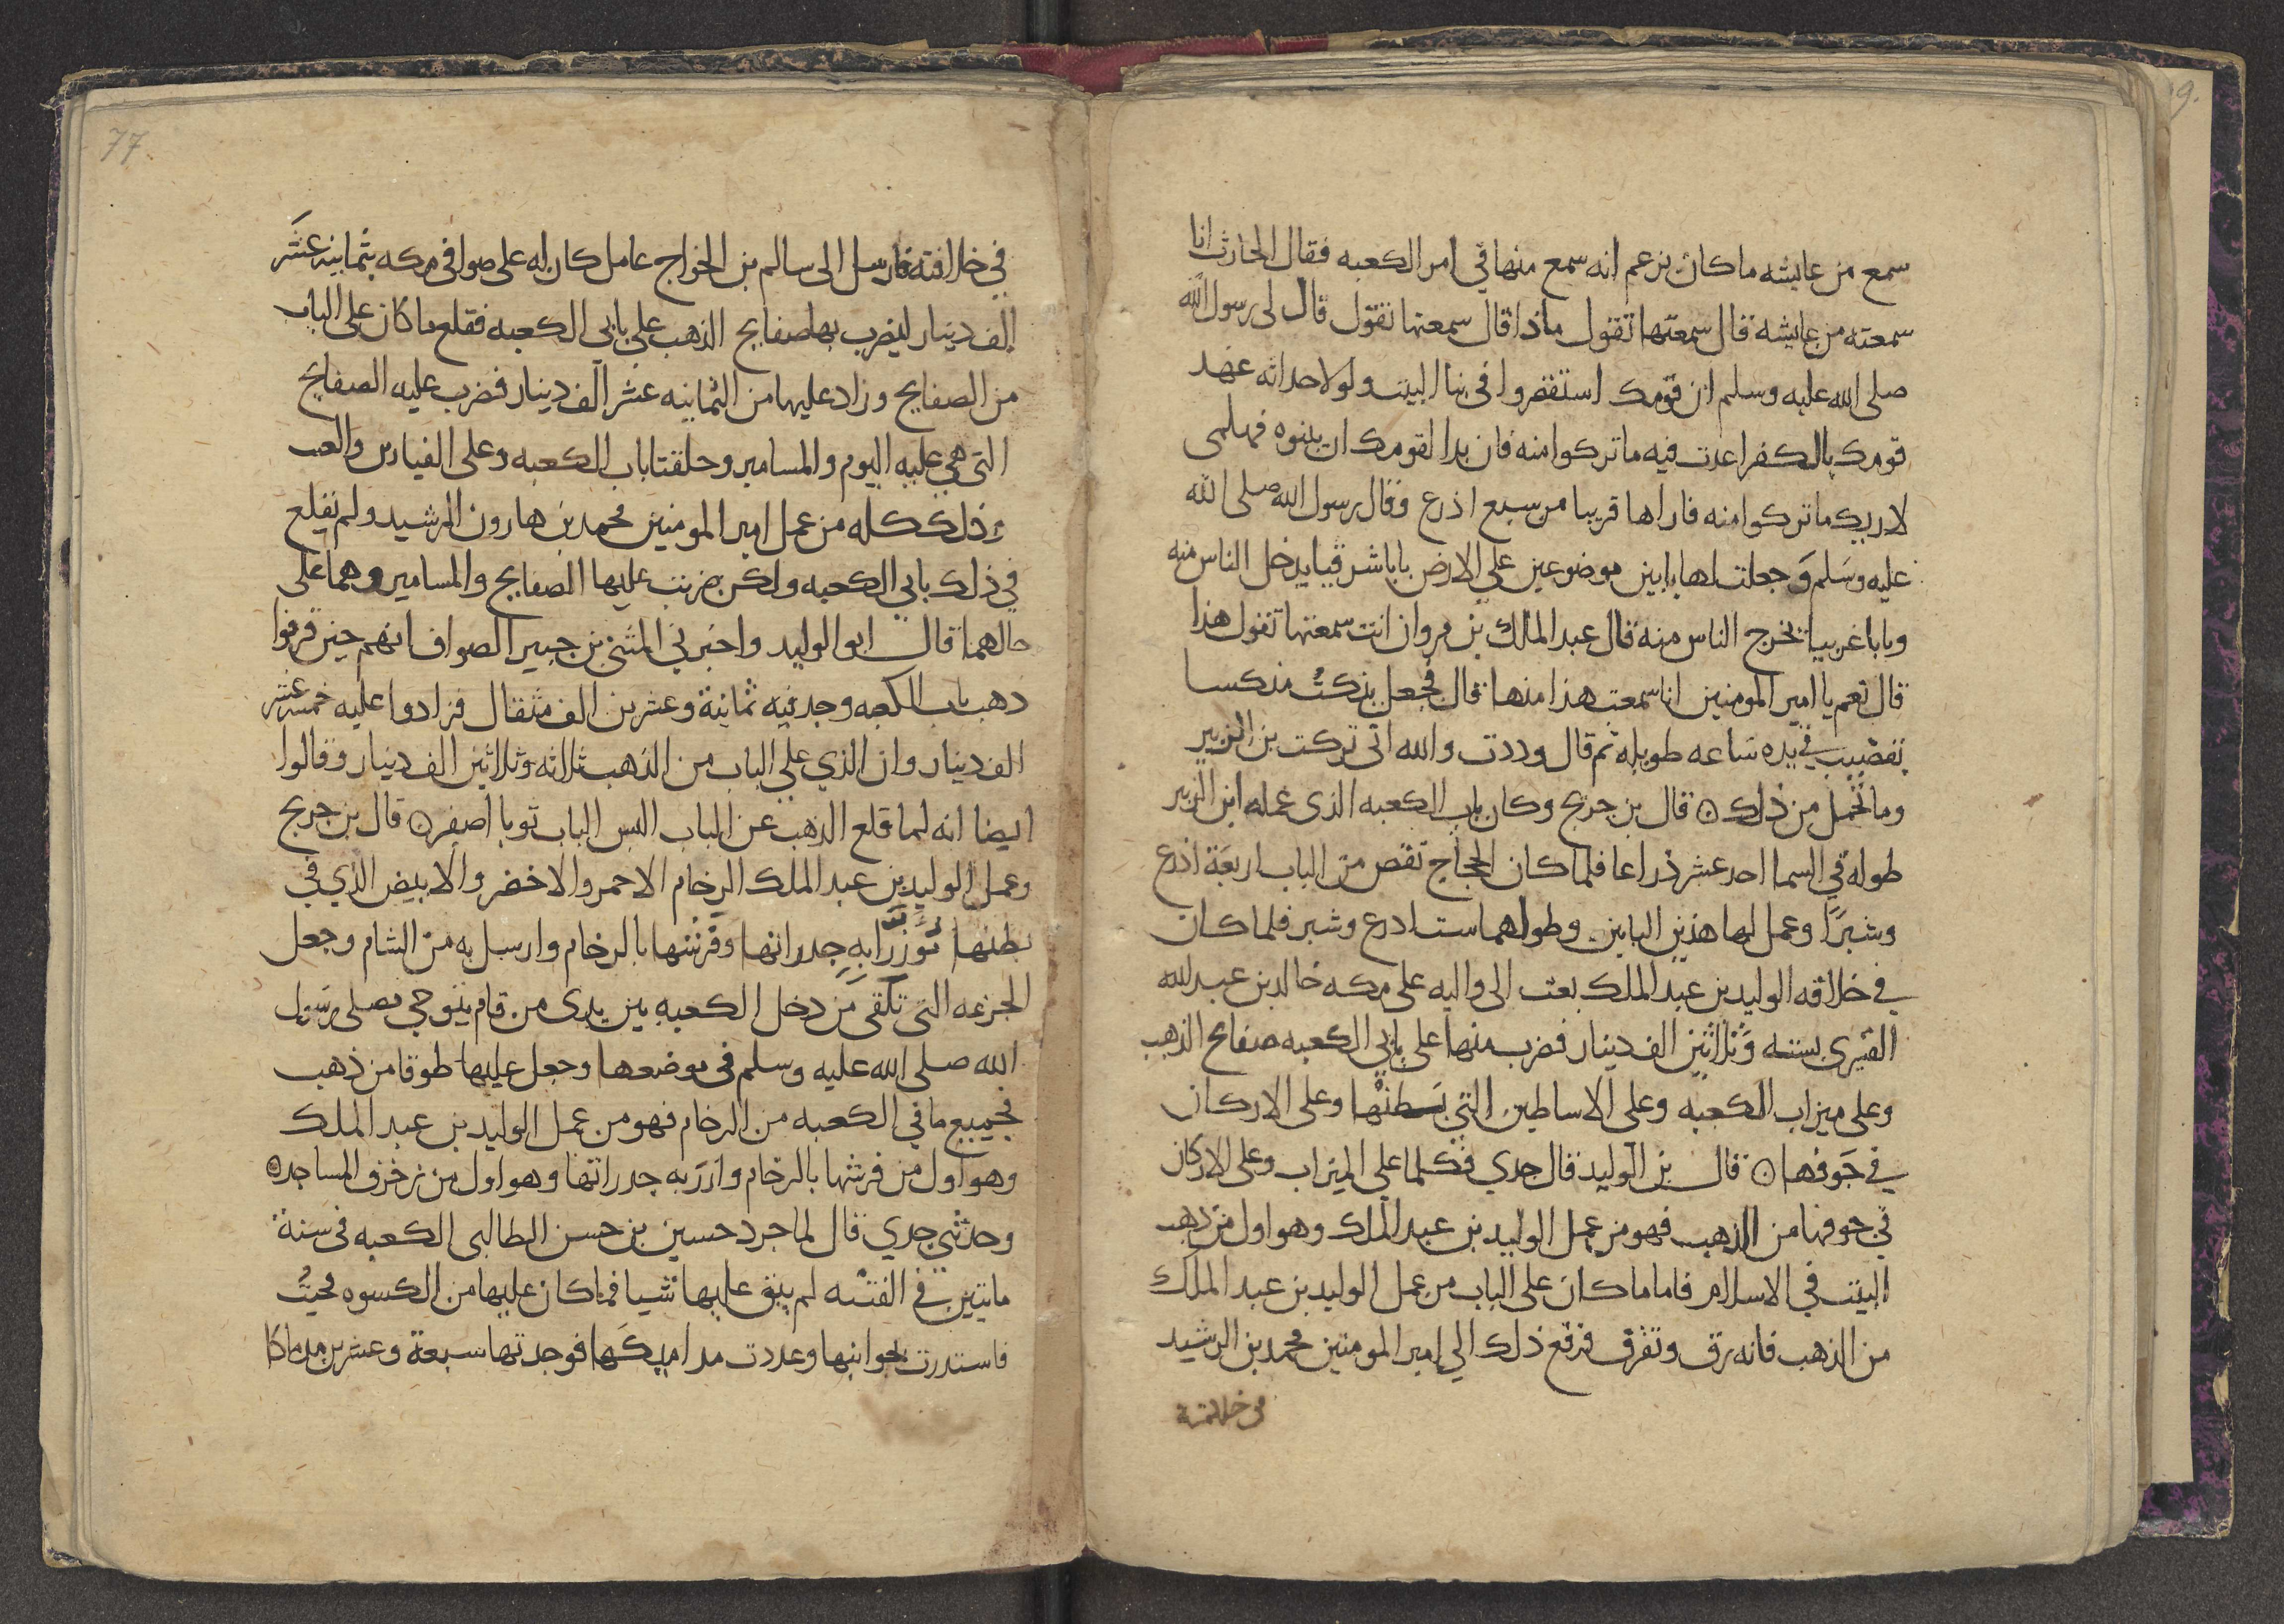 سمع من عايشه ما كان يزعم انه سمع منها في امر الكعبه فقال الحارث انا
سمعته من عايشه قال سمعتها تقول ماذا قال سمعتها تقول قال لى رسول الله
صلى الله عليه وسلم ان قومك استقصروا فى بنا البيت ولولا حداثه عهد
قومك بالكفر اعدت فيه ما تركوا منه فان بدا لقومك ان يبنوه فهلمى
لاريك ما تركوا منه فاراها قريبا من سبع اذرع وقال رسول الله صلى الله
عليه وسلم وجعلت لها بابين موضوعين على الارض بابا شرقيا يدخل الناس منه
وبابا غربيا تخرج الناس منه قال عبد الملك بن مروان انت سمعتها تقول هذا
قال نعم يا امير المومنين انا سمعت هذا منها قال فجعل ينكت منكسا
بقضيب في يده ساعه طويله ثم قال وددت والله انى تركت بن الزبير
وما تحمل من ذلك ٥ قال بن جريج وكان باب الكعبه الذى عمله ابن الزبير
طوله في السما احد عشر ذراعا فلما كان الحجاج نقص من الباب اربعة اذرع
وشبرًا وعمل لها هذين البابين وطولهما ست اذرع وشبر فلما كان
في خلافه الوليد بن عبد الملك بعث الى واليه على مكه خالد بن عبد الله
القسرى بسته وثلاثين الف دينار فضرب منها على بابي الكعبه صفايح الذهب
وعلى ميزاب الكعبه وعلى الاساطين التي بسطنها وعلى الاركان
في جوفها ٥ قال بن الوليد قال جدي فكلما على الميزاب وعلى الاركان
في جوفها من الذهب فهو من عمل الوليد بن عبد الملك وهو اول من ذهب
البيت في الاسلام فاما ما كان على الباب من عمل الوليد بن عبد الملك
من الذهب فانه رق وتفرق فرفع ذلك الي امير المومنين محمد بن الرشيد
في خلافته
77
في خلافته فارسل الى سالم بن الجراح عامل كان له على صوافى مكه بثمانيه عشر
الف دينار ليضرب بها صفايح الذهب على بابى الكعبه فقلع ما كان على الباب
من الصفايح وزاد عليها من الثمانيه عشر الف دينار فضرب عليه الصفايح
التى هي عليه اليوم والمسامير وحلقتا باب الكعبه وعلى الفيارس والعتب
وذلك كله من عمل امير المومنين محمد بن هارون الرشيد ولم يقلع
في ذلك بابي الكعبه ولكن ضربت عليها الصفايح والمسامير وهما على
حالهما قال ابو الوليد واخبرني المثنى بن جبير الصواف انهم حين فرقوا
ذهب باب الكعبه وجد فيه ثمانية وعشرين الف مثقال فزادوا عليه خمسه عشر
الف دينار وان الذي على الباب من الذهب ثلاثه وثلاثين الف دينار وقالوا
ايضا انه لما قلع الذهب عن الباب البس الباب ثوبا اصفر ٥ قال بن جريج
وعمل الوليد بن عبد الملك الرخام الاحمر والاخضر والابيض الذي في
بطنها موزرا به جدرانها وفرشها بالرخام وارسل به من الشام وجعل
الجزعه التى تلقى من دخل الكعبه بين يدى من قام يتوخي مصلى رسول
الله صلى الله عليه وسلم فى موضعها وجعل عليها طوقا من ذهب
فجميع ما في الكعبه من الرخام فهو من عمل الوليد بن عبد الملك
وهو اول من فرشها بالرخام وازر به جدراتها وهو اول من زخرف المساجد ٥
وحدثني جدي قال لما جرد حسين بن حسن الطالبى الكعبه فى سنة
مايتين في الفتنه لم يبق عليها شيا فما كان عليها من الكسوه فجيت
فاستدرت بجوانبها وعددت مداميكها فوجدتها سبعة وعشرين مدماكا